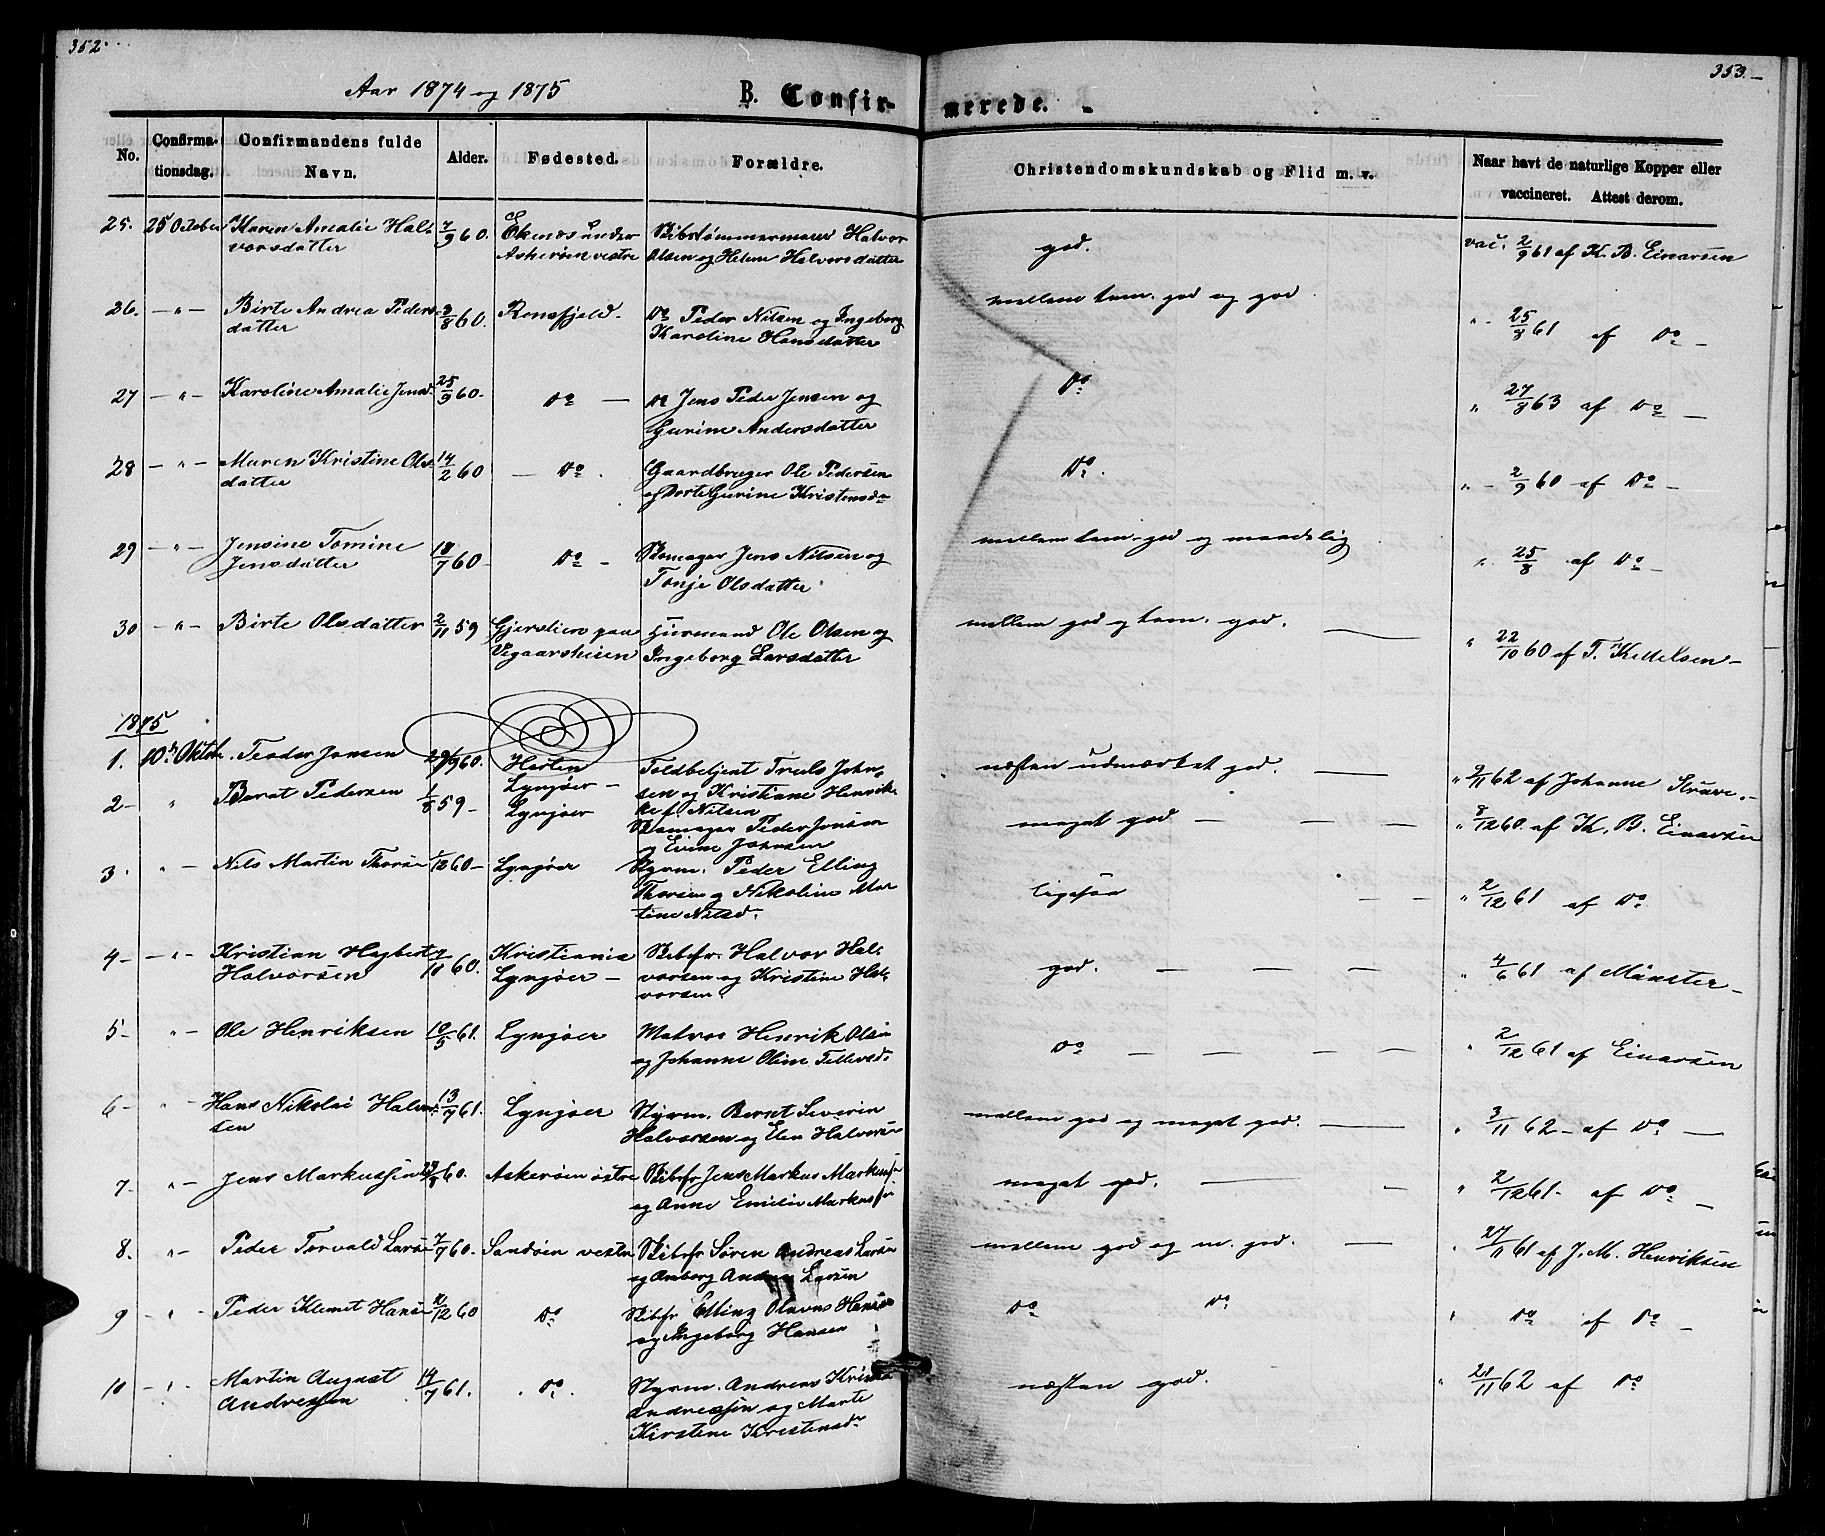 352
353
Aar 1874 og 1875
B. Confirmerede.
No. Confirmationsdag. Confirmandens fulde Navn. Alder. Fødested. Forældre. Christendomskundskab og Flid m. v. Naar havt de naturlige Kopper eller vaccineret. Attest derom.
25. 25 October Karen Amalie Hal- 7/9 60. Ekenæs under Skibstømmermand Halvor god. vac. 2/9 61 af K. B. Einarsen
vorsdatter Askerøen vestre Olsen og Helene Halvorsdatter
26. —"— Birte Andrea Peders- 3/8 60. Ronefjeld. Do Peder Nilsen og Ingeborg mellem tem. god og god "- 25/8 61 af Do —
datter Karoline Hansdatter
27 —"— Karoline Amalie Jensd. 25/9 60. Do — Do Jens Peder Jensen og Do " 27/8 63 af Do —
Gurine Andersdatter
28 —"— Maren Kristine Ols- 14/2 60 — Do. Gaardbruger Ole Pedersen Do. "- 2/9 60 af Do —
datter og Dorte Gurine Kristensdr
29 —"— Jensine Tomine 18/7 60 — Do — Skomager Jens Nilsen og mellem tem. god og maadelig ". 25/8 af Do —
Jensdatter Tonje Olsdatter
30 —"— Birte Olsdatter 2/11 59 Gjerstien paa Huusmand Ole Olsen og mellem god og tem. god. — " 22/10 60 af T. Kettelsen —
Vegaarsheien Ingeborg Larsdatter
1875
1. 10de Oktob. Teodor Jonsen 60. Toldbetjent Truls John- næsten udmærket god. — " 2/11 62 af Johanne Struve.
Lyngøer — sen og Kristiane Henrik-
2 — " Berat Pedersen 1/8 59 — Lyngøer Nilsen meget god — — — " 8/12 60 af K. B. Einarsen
Skomager Peder Jonsen
og Johnsen
3. " — Nils Martin Thorsen 60 — Lyngøer Styrm. Peder Elling ligesaa — — " 2/12 61 af Do
Thorsen og Nikoline Mar
tine Nilsd.
4 — —"— Kristian Halvorsen 60. Kristiania Skibsfr. Halvor Hal- god. — — — " 4/6 61 af Münster —
Lyngøer — vorsen og Kristine Hal-
vorsen.
5 — "— Ole Henriksen 10/5 61. Lyngøer Matros Henrik Olsen Do — — — — " 2/12 61 af Einarsen
og Johanne Oline Tellevsd.
6 — " — Hans Nikolai Halvor- 13/9 61. Lyngøer Styrm. Bernt Severin mellem god og meget god. — " 3/11 62 — af Do —
sen Halvorsen og Elen Halvorsen
7 — " — Jens Markussen 60. Askerøen østre Skibsfr Jens Markus Markussen meget god. — — " 2/12 61 — af Do —
og Anne Emilie Markussen
8. " — Peder Torvald Larsen 7/7 60. Sandøen vestre Skibsfr Søren Andreas Larsen mellem god og m. god. — " 27/11 61 af J. M. Henriksen
og Anborg Andrea Larsen
9 — " Peder Klemet Hansen 12 60 Do Skibsfr Elling Olavus Hansen Do Do " Do af Do —
og Ingeborg Hansen
10 — " — Martin August 14/7 61. . Do. Styrm. Andreas Kristian næsten god. " 21/11 62 af Do
Andressen Andressen og Marte
Kirstene Kristensdr